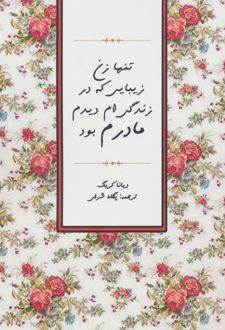 تنها زن
زیبایی که در
زندگی ام دیدم
مادرم بود
دیانا کریک
ترجمه: پگاه شرفی